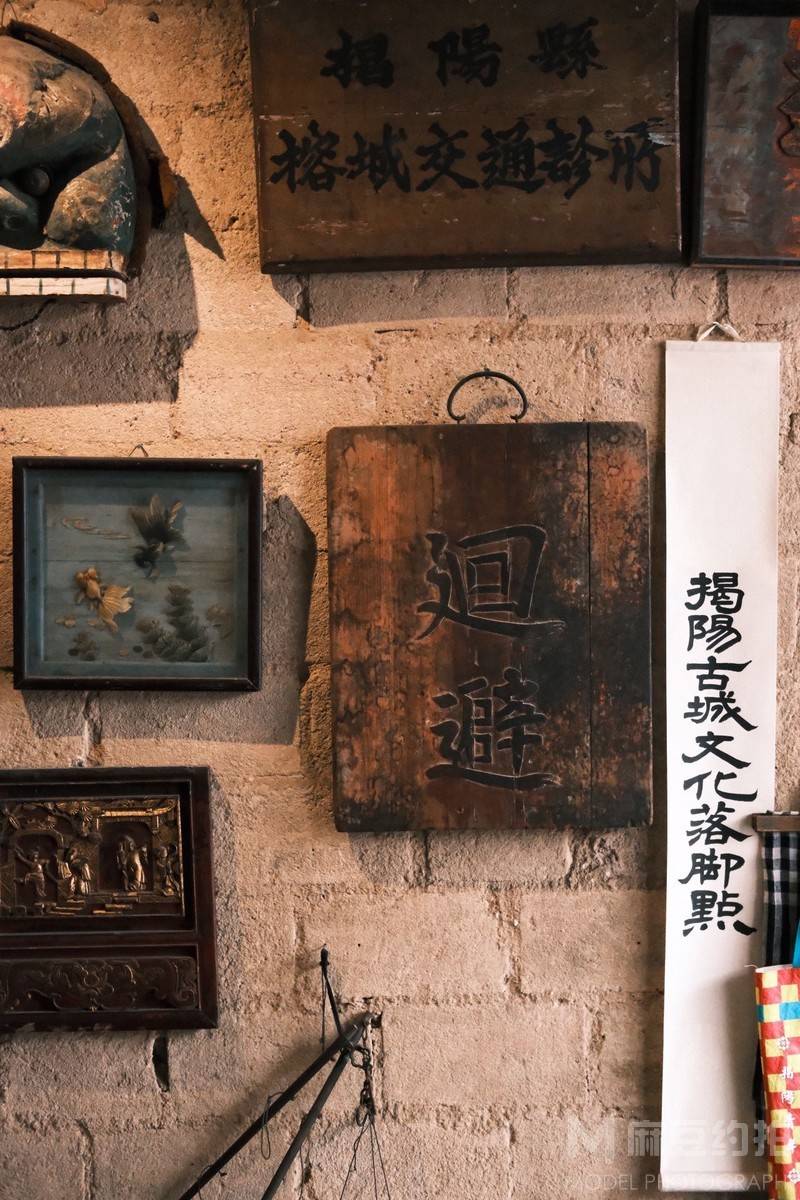 揭陽縣
榕城交通診所
迴避
揭陽古城文化落脚點
麻豆约拍
MODEL PHOTOGRAPHY